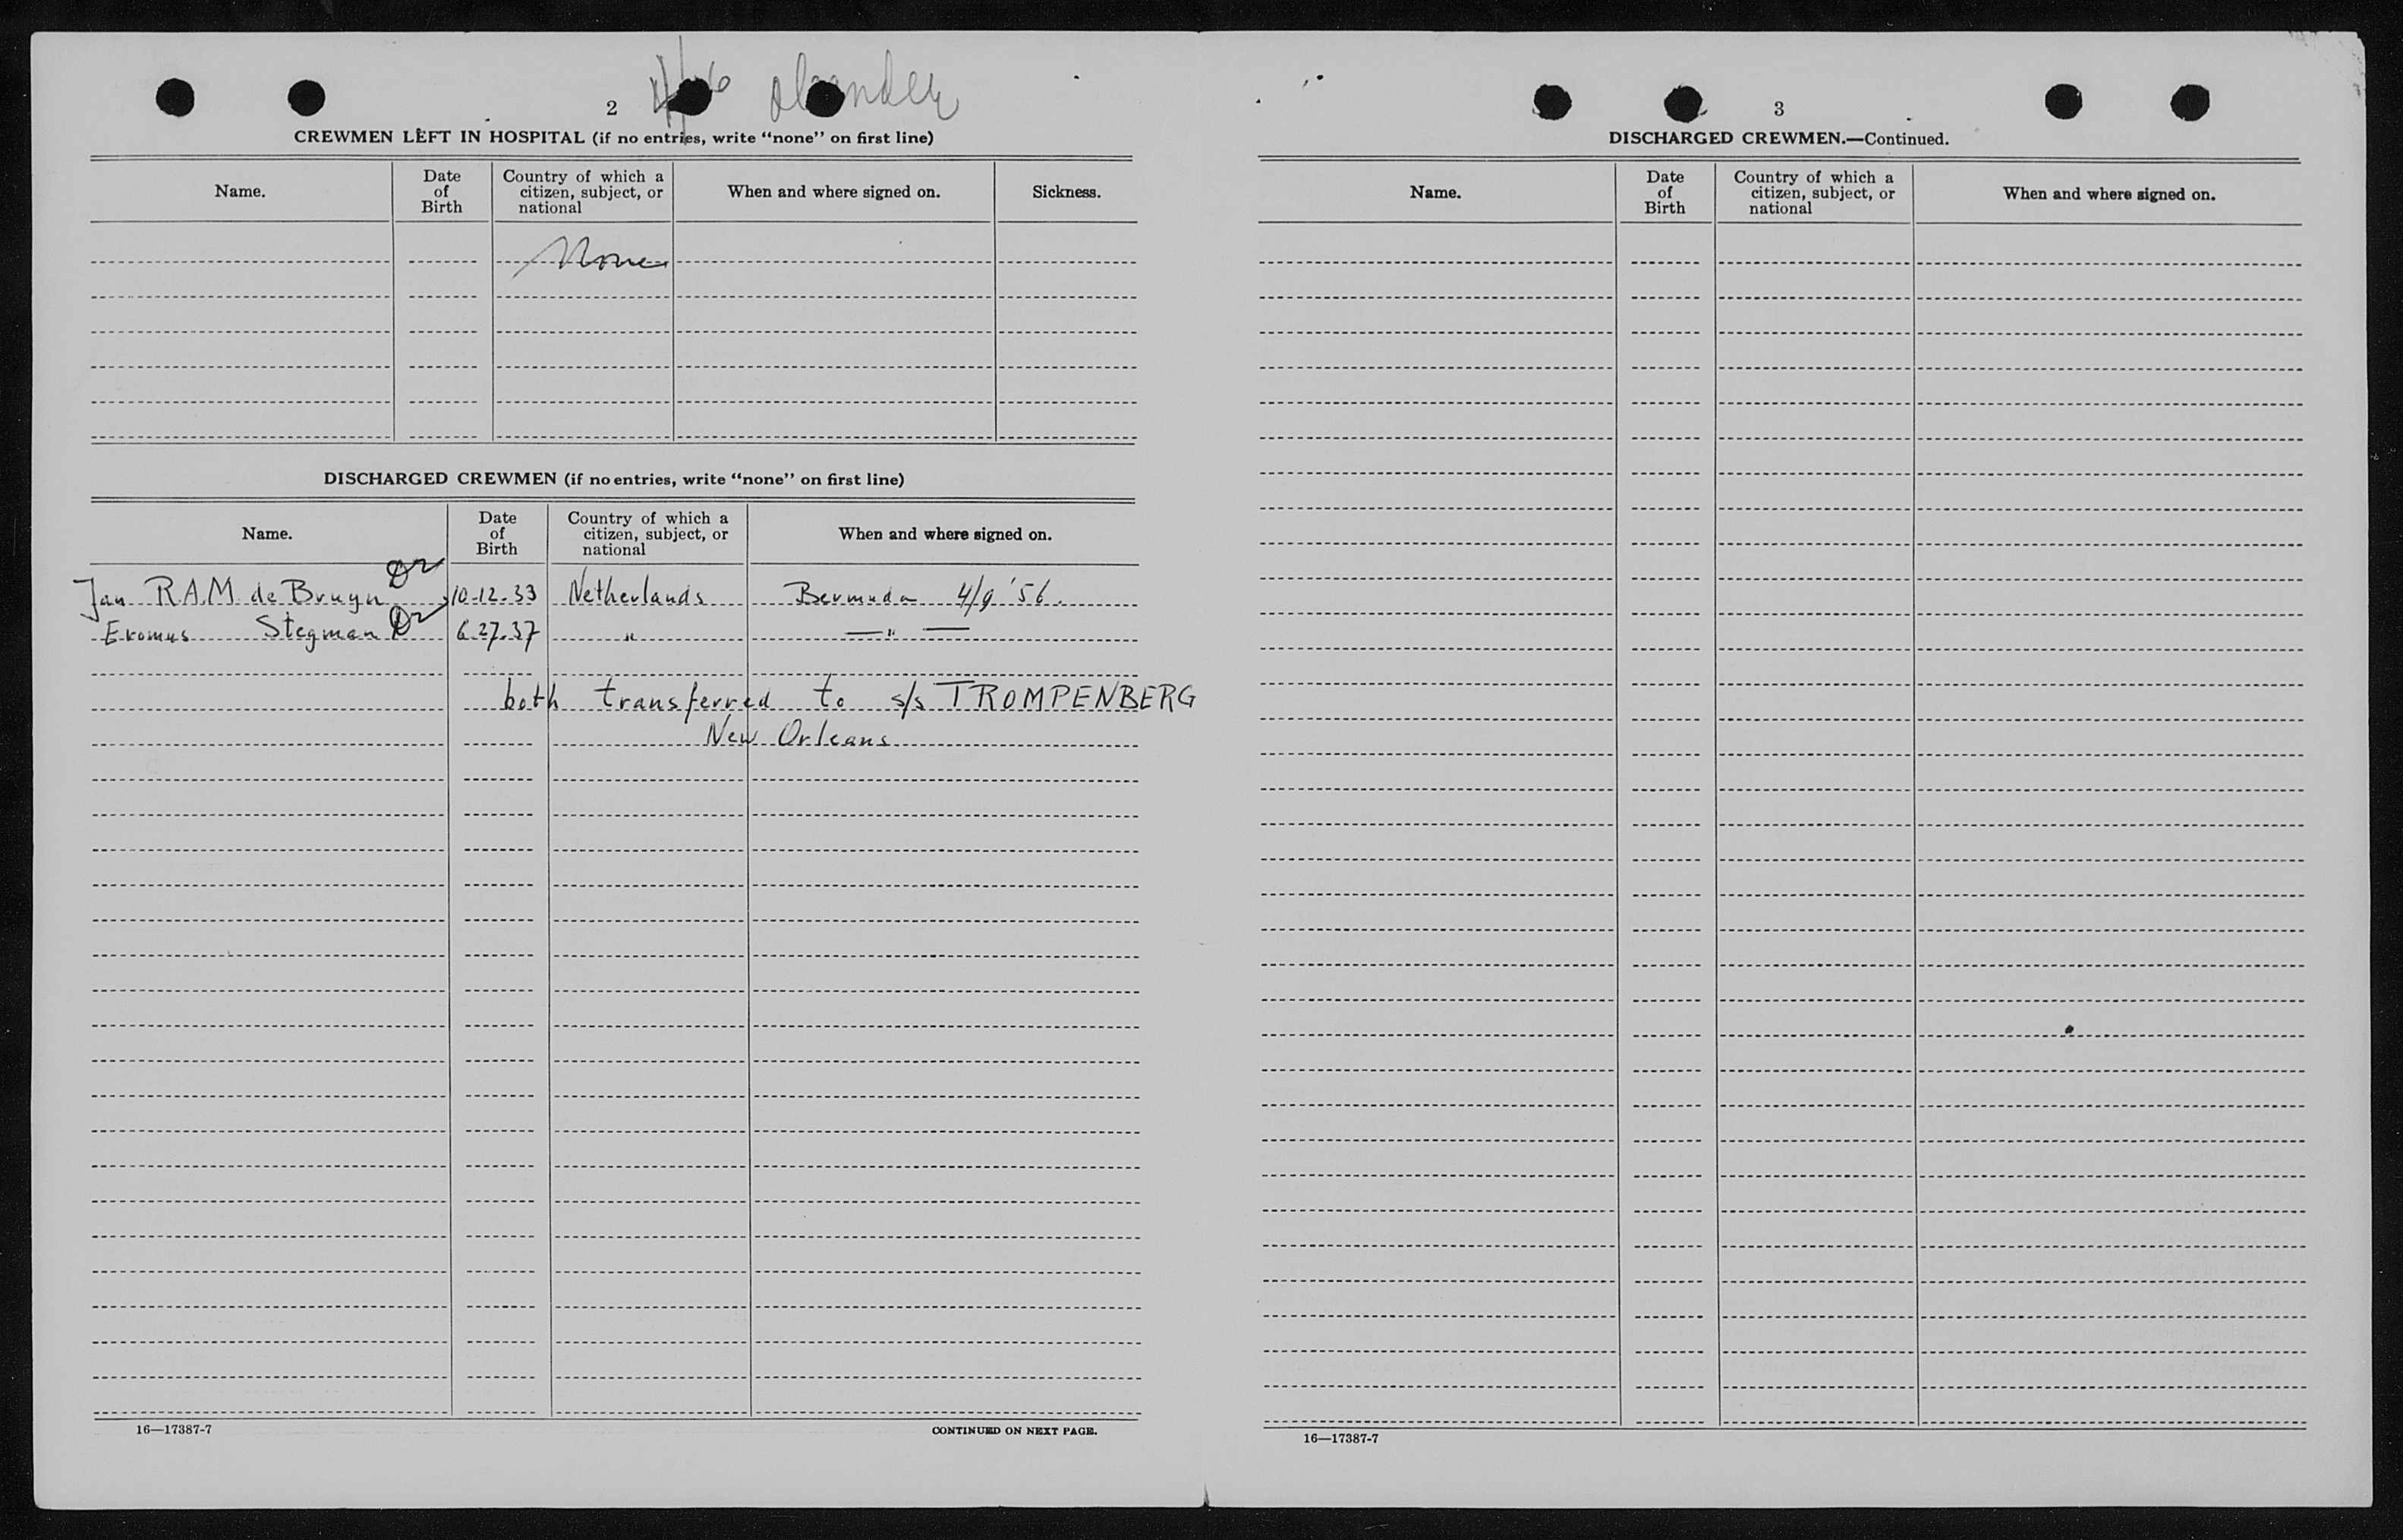 2
CREWMEN LEFT IN HOSPITAL (if no entries, write "none" on first line)
Name.
Date of Birth
Country of which a citizen, subject, or national
When and where signed on.
Sickness.
None
DISCHARGED CREWMEN (if no entries, write "none" on first line)
Name.
Date of Birth
Country of which a citizen, subject, or national
When and where signed on.
Jan R.A.M. de Bruyn 10-12-33 Netherlands Bermuda 4/9 '56.
Eromus Stegman 6-27-37 " — " —
both transferred to s/s TROMPENBERG
New Orleans
16—17387-7
CONTINUED ON NEXT PAGE.
3
DISCHARGED CREWMEN.—Continued.
Name.
Date of Birth
Country of which a citizen, subject, or national
When and where signed on.
16—17387-7